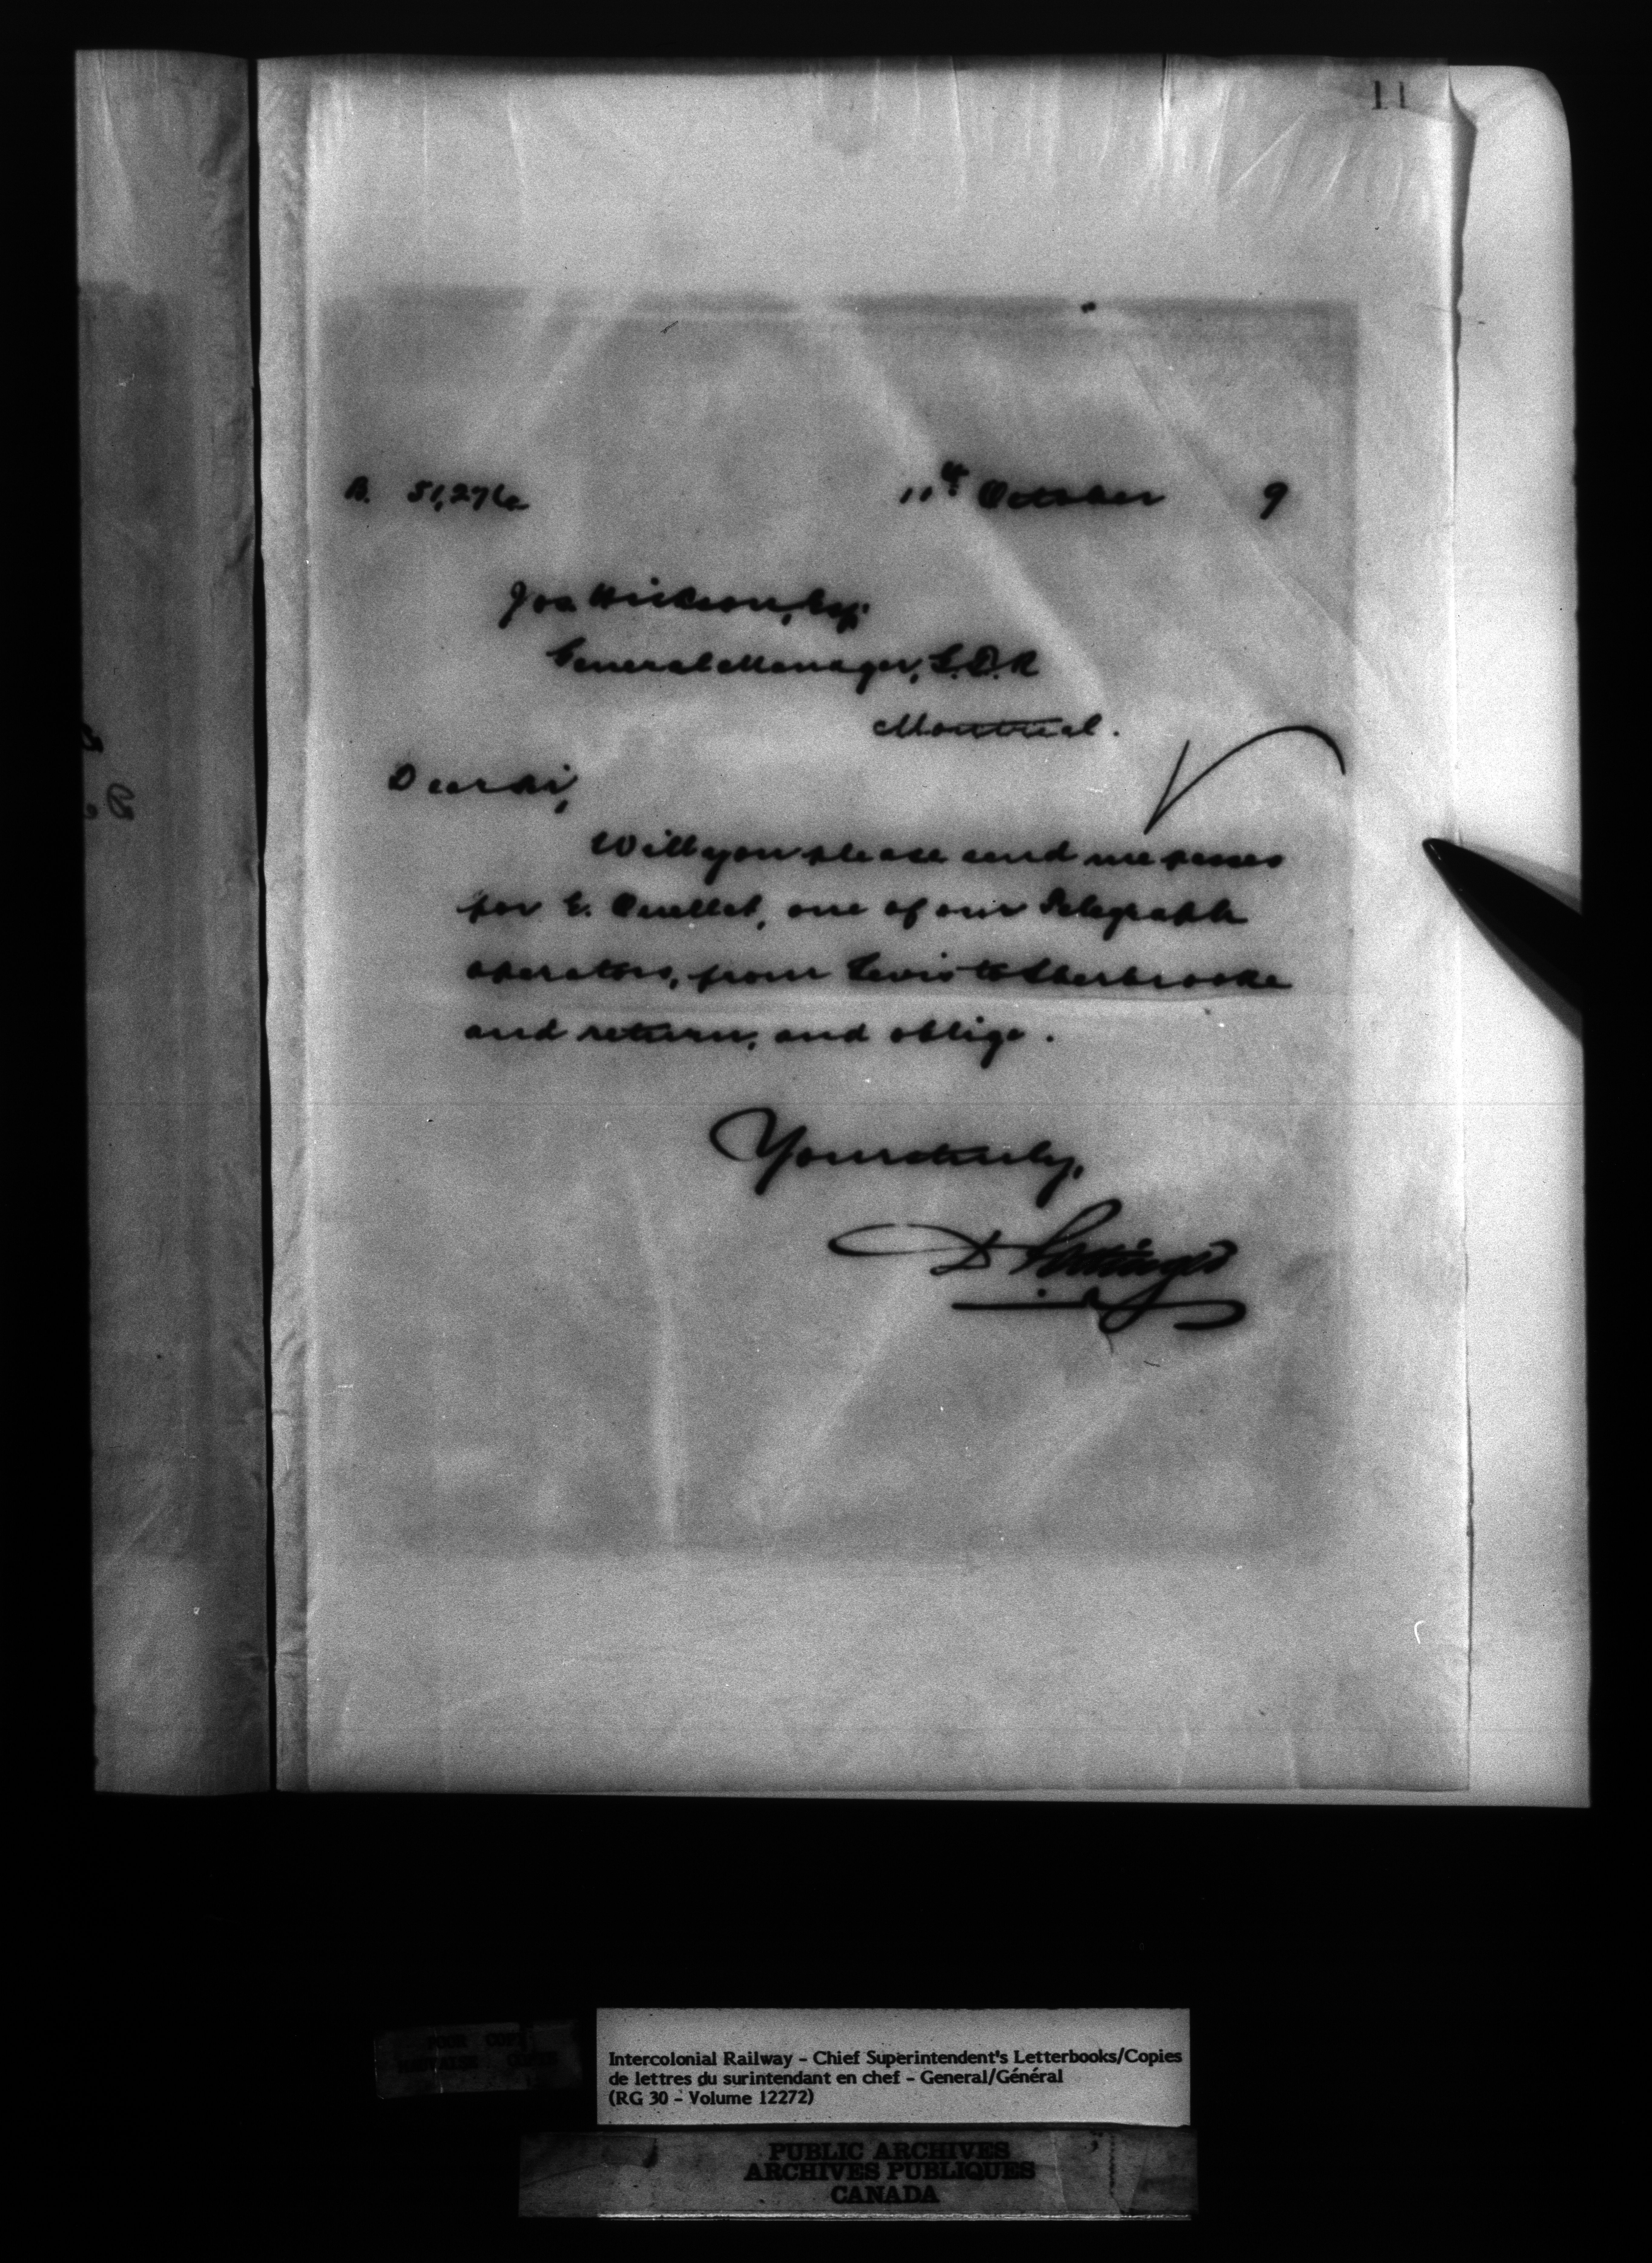 11
B. 51,276
11th October 9
Jos Hickson, Esq.
General Manager, G.T.R
Montreal.
Dear Sir,
Will you please send me passes
for E. Ouellet, one of our Telegraph
operators, from Levis to Sherbrooke
and return, and oblige.
Yours truly,
D Pottinger
POOR COPY
Intercolonial Railway - Chief Superintendent's Letterbooks/Copies
de lettres du surintendant en chef - General/Général
(RG 30 - Volume 12272)
PUBLIC ARCHIVES
ARCHIVES PUBLIQUES
CANADA